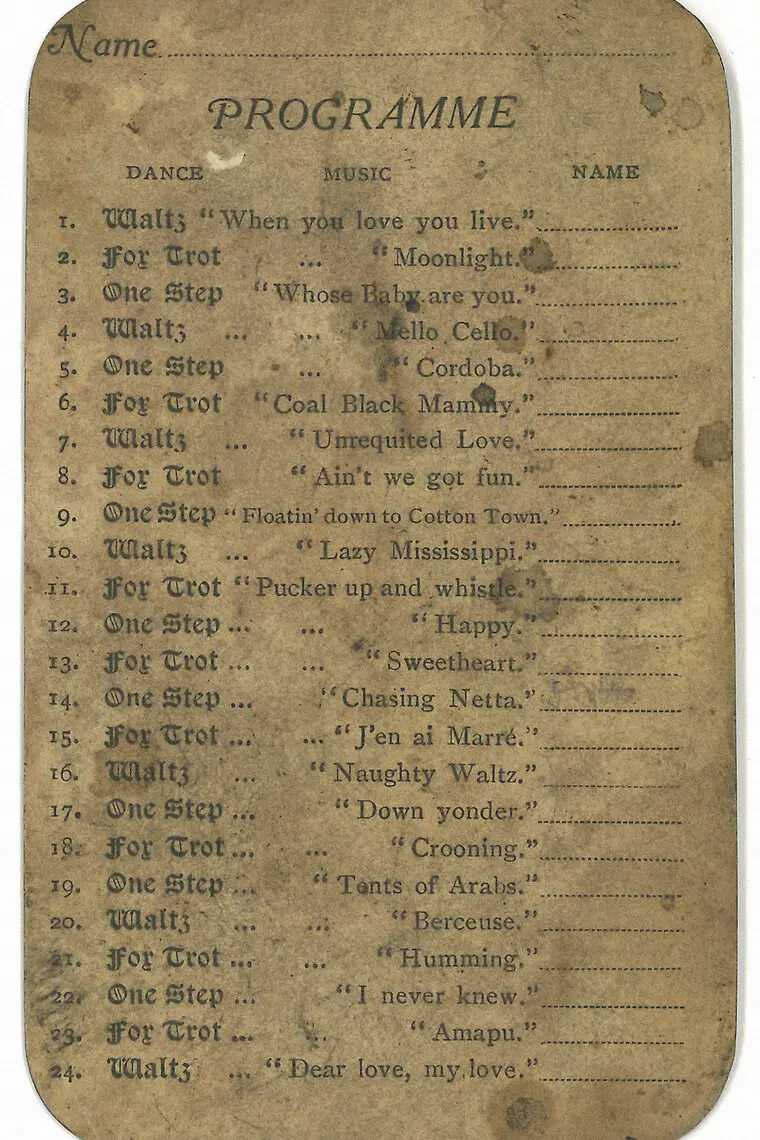 Name
PROGRAMME
DANCE MUSIC NAME
1. Waltz "When you love you live."
2. Fox Trot ... "Moonlight."
3. One Step "Whose Baby are you."
4. Waltz ... ... "Mello Cello."
5. One Step ... "Cordoba."
6. Fox Trot "Coal Black Mammy."
7. Waltz ... "Unrequited Love."
8. Fox Trot "Ain't we got fun."
9. One Step "Floatin' down to Cotton Town."
10. Waltz ... "Lazy Mississippi."
11. Fox Trot "Pucker up and whistle."
12. One Step ... ... "Happy."
13. Fox Trot ... ... "Sweetheart."
14. One Step ... "Chasing Netta."
15. Fox Trot ... ... "J'en ai Marré."
16. Waltz ... "Naughty Waltz."
17. One Step ... "Down yonder."
18. Fox Trot ... ... "Crooning."
19. One Step ... "Tents of Arabs."
20. Waltz ... ... "Berceuse."
21. Fox Trot ... ... "Humming."
22. One Step ... "I never knew."
23. Fox Trot ... ... "Amapu."
24. Waltz ... "Dear love, my love."